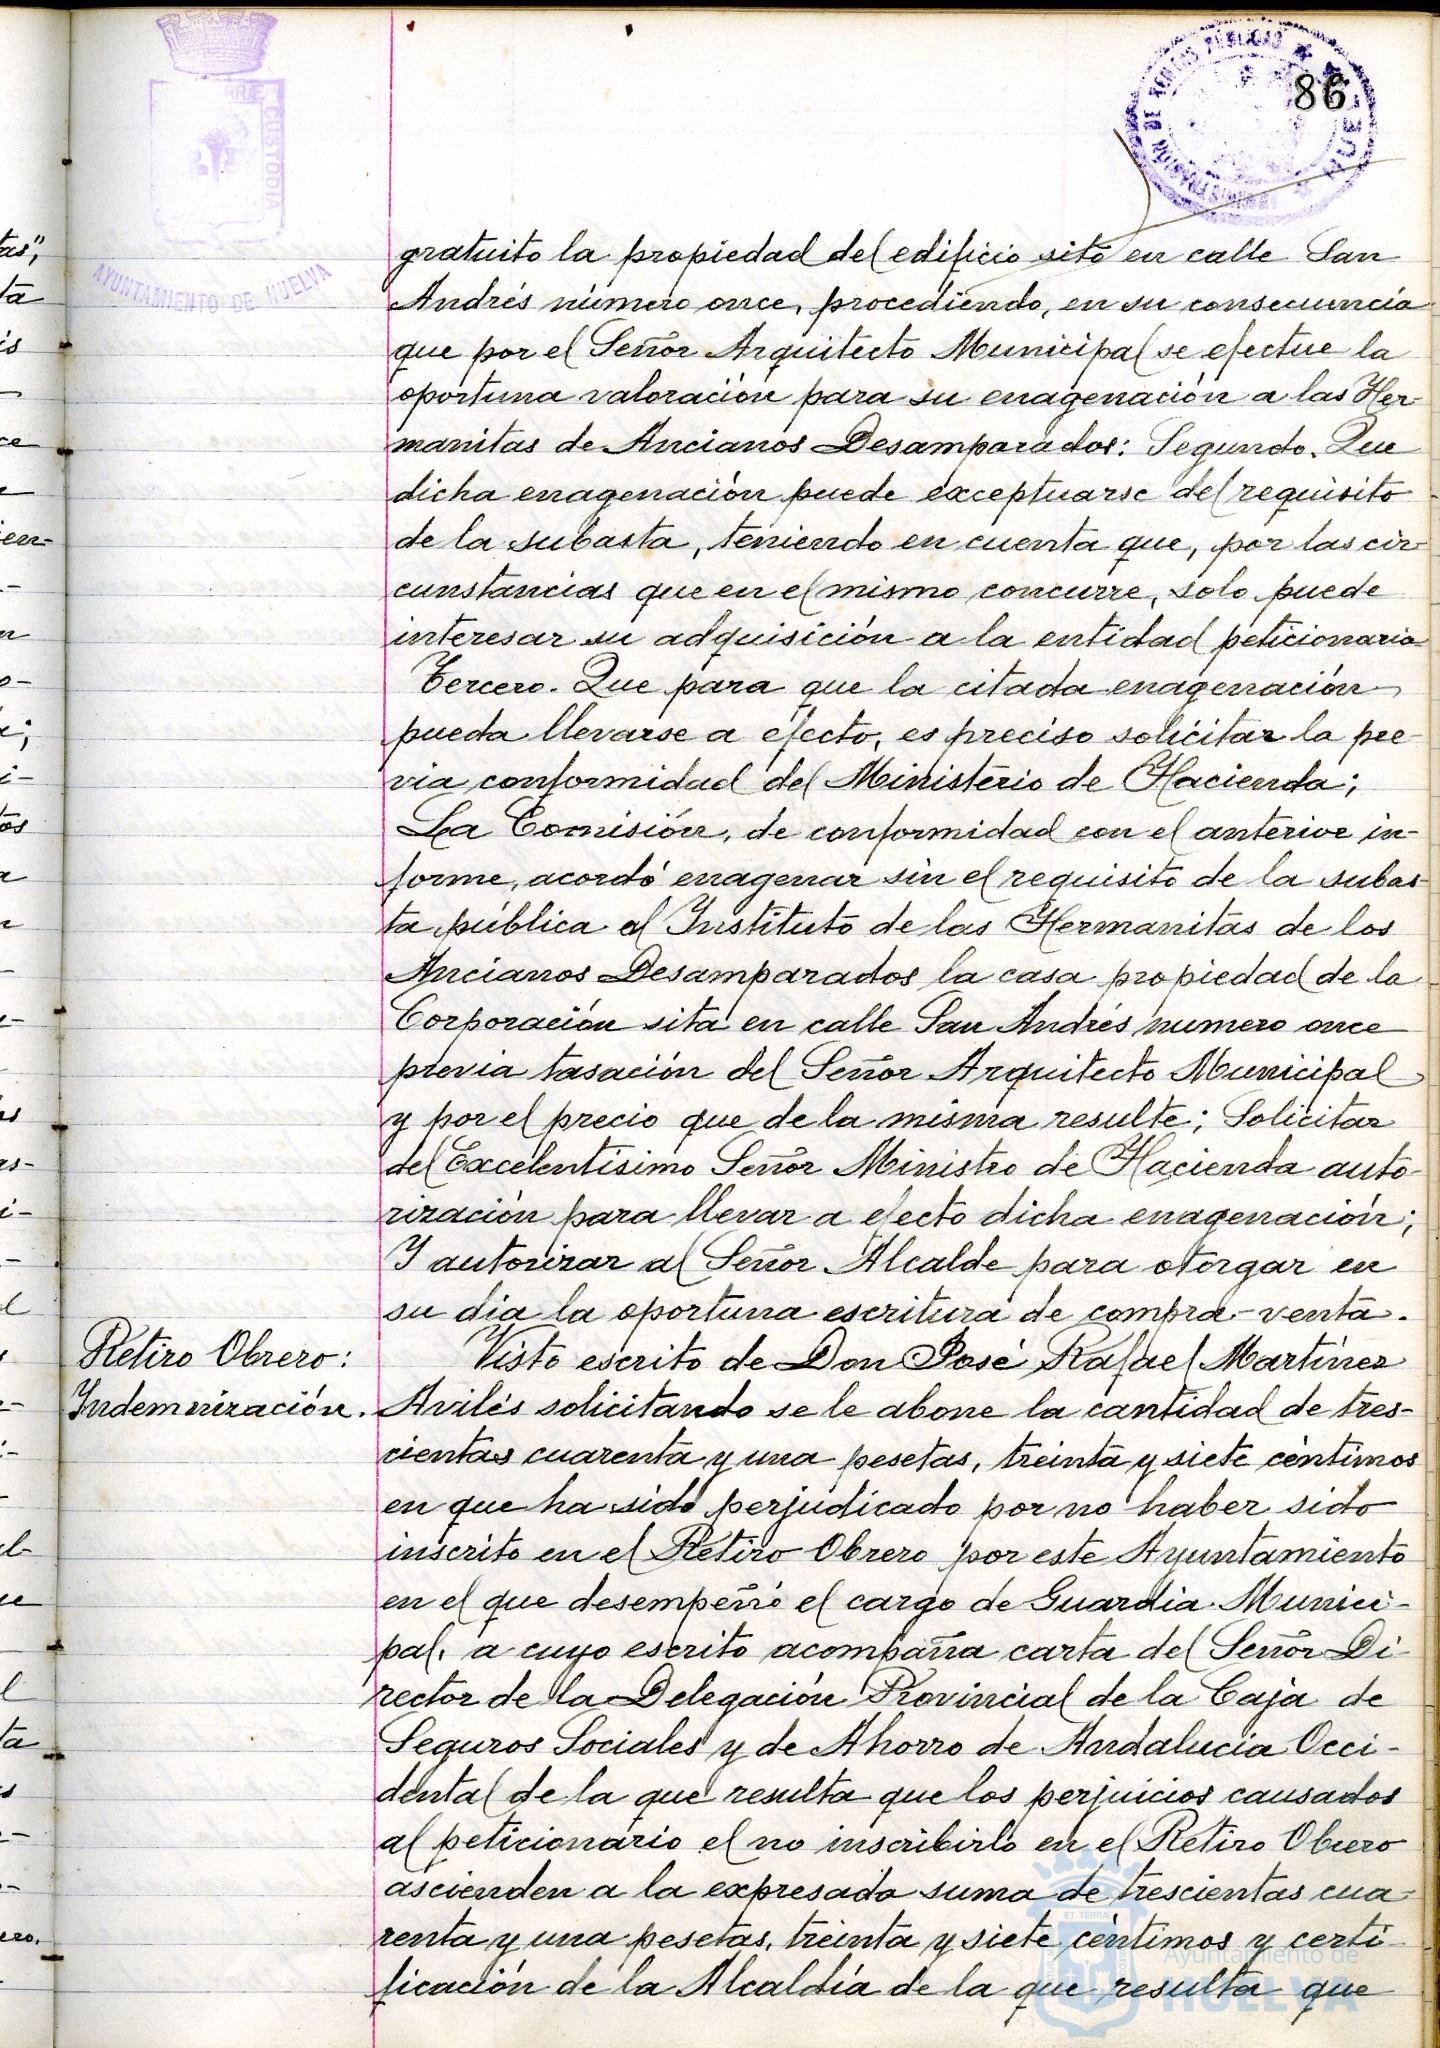 86
TERRÆ CUSTODIA
AYUNTAMIENTO DE HUELVA
gratuito la propiedad del edificio sito en calle San
Andrés número once, procediendo, en su consecuencia
que por el Señor Arquitecto Municipal se efectue la
oportuna valoración para su enagenación a las Her-
manitas de Ancianos Desamparados: Segundo. Que
dicha enagenación puede exceptuarse del requisito
de la subasta, teniendo en cuenta que, por las cir-
cunstancias que en el mismo concurre, solo puede
interesar su adquisición a la entidad peticionaria
Tercero. Que para que la citada enagenación
pueda llevarse a efecto, es preciso solicitar la pre-
via conformidad del Ministerio de Hacienda;
La Comisión, de conformidad con el anterior in-
forme, acordó enagenar sin el requisito de la subas-
ta pública al Instituto de las Hermanitas de los
Ancianos Desamparados la casa propiedad de la
Corporación sita en calle San Andrés numero once
previa tasación del Señor Arquitecto Municipal
y por el precio que de la misma resulte; Solicitar
del Excelentísimo Señor Ministro de Hacienda auto-
rización para llevar a efecto dicha enagenación;
Y autorizar al Señor Alcalde para otorgar en
su dia la oportuna escritura de compra-venta.
Retiro Obrero:
Indemnización.
Visto escrito de Don José Rafael Martínez
Avilés solicitando se le abone la cantidad de tres-
cientas cuarenta y una pesetas, treinta y siete céntimos
en que ha sido perjudicado por no haber sido
inscrito en el Retiro Obrero por este Ayuntamiento
en el que desempeñó el cargo de Guardia Munici-
pal, a cuyo escrito acompaña carta del Señor Di-
rector de la Delegación Provincial de la Caja de
Seguros Sociales y de Ahorro de Andalucía Occi-
dental de la que resulta que los perjuicios causados
al peticionario el no inscribirlo en el Retiro Obrero
ascienden a la expresada suma de trescientas cua-
renta y una pesetas, treinta y siete céntimos y certi-
ficación de la Alcaldía de la que resulta que
Ayuntamiento de
HUELVA